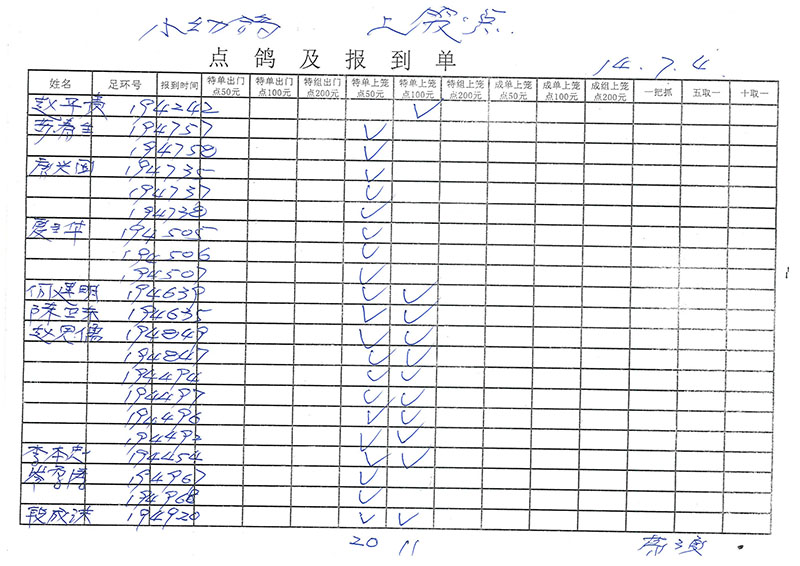 小幼鸽 上笼点
点鸽及报到单
14.7.4.
姓名 足环号 报到时间 特单出门点50元 特单出门点100元 特组出门点200元 特单上笼点50元 特单上笼点100元 特组上笼点200元 成单上笼点50元 成单上笼点100元 成组上笼点200元 一把抓 五取一 十取一
赵平贵 194242 ✓
194757 ✓
194758 ✓
唐兴国 194735 ✓
194737 ✓
194738 ✓
194505 ✓
194506 ✓
194507 ✓
何建明 194639 ✓ ✓
194635 ✓ ✓
赵思儒 194849 ✓ ✓
194847 ✓ ✓
194494 ✓ ✓
194497 ✓ ✓
194496 ✓ ✓
194492 ✓ ✓
李本忠 194454 ✓ ✓
194967 ✓
194968 ✓
194920 ✓ ✓
20 11